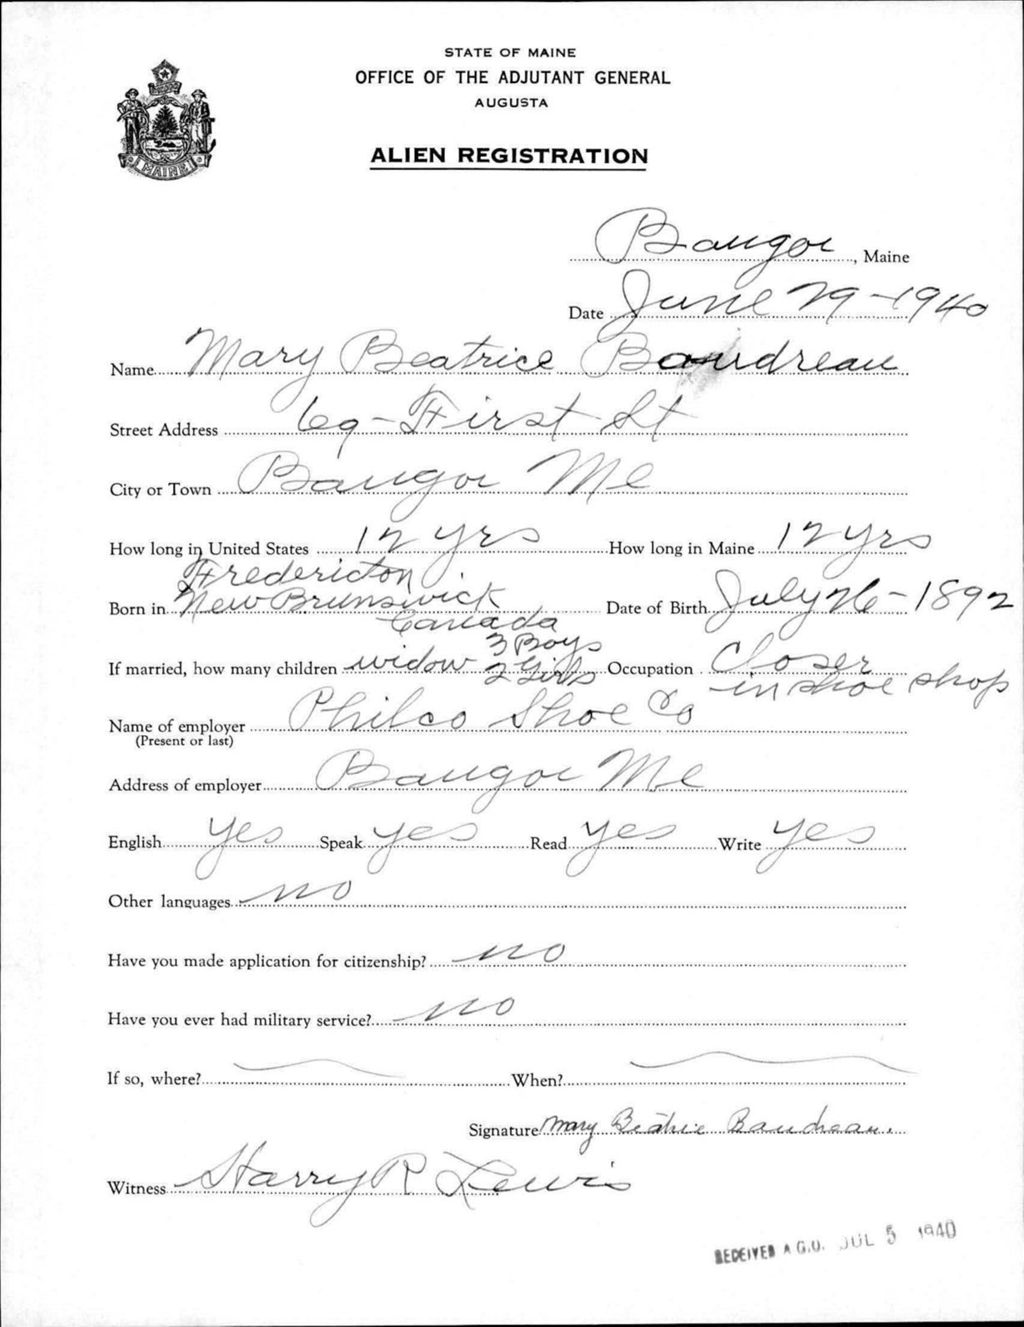 STATE OF MAINE
OFFICE OF THE ADJUTANT GENERAL
AUGUSTA
ALIEN REGISTRATION
MAINE
Bangor, Maine
Date June 29-1940
Name Mary Beatrice Baudreau
Street Address 69-First St
City or Town Bangor Me
How long in United States 12 yrs How long in Maine 12 yrs
Fredericton
Born in New Brunswick Date of Birth July 26-1892
Canada
3 Boys
If married, how many children widow 2 Girls Occupation Closer
in shoe shop
Name of employer Philco Shoe Co
(Present or last)
Address of employer Bangor Me
English yes Speak yes Read yes Write yes
Other languages no
Have you made application for citizenship? no
Have you ever had military service? no
If so, where? When?
Signature Mary Beatrice Baudreau.
Witness Harry R Lewis
RECEIVED A.G.O. JUL 5 1940